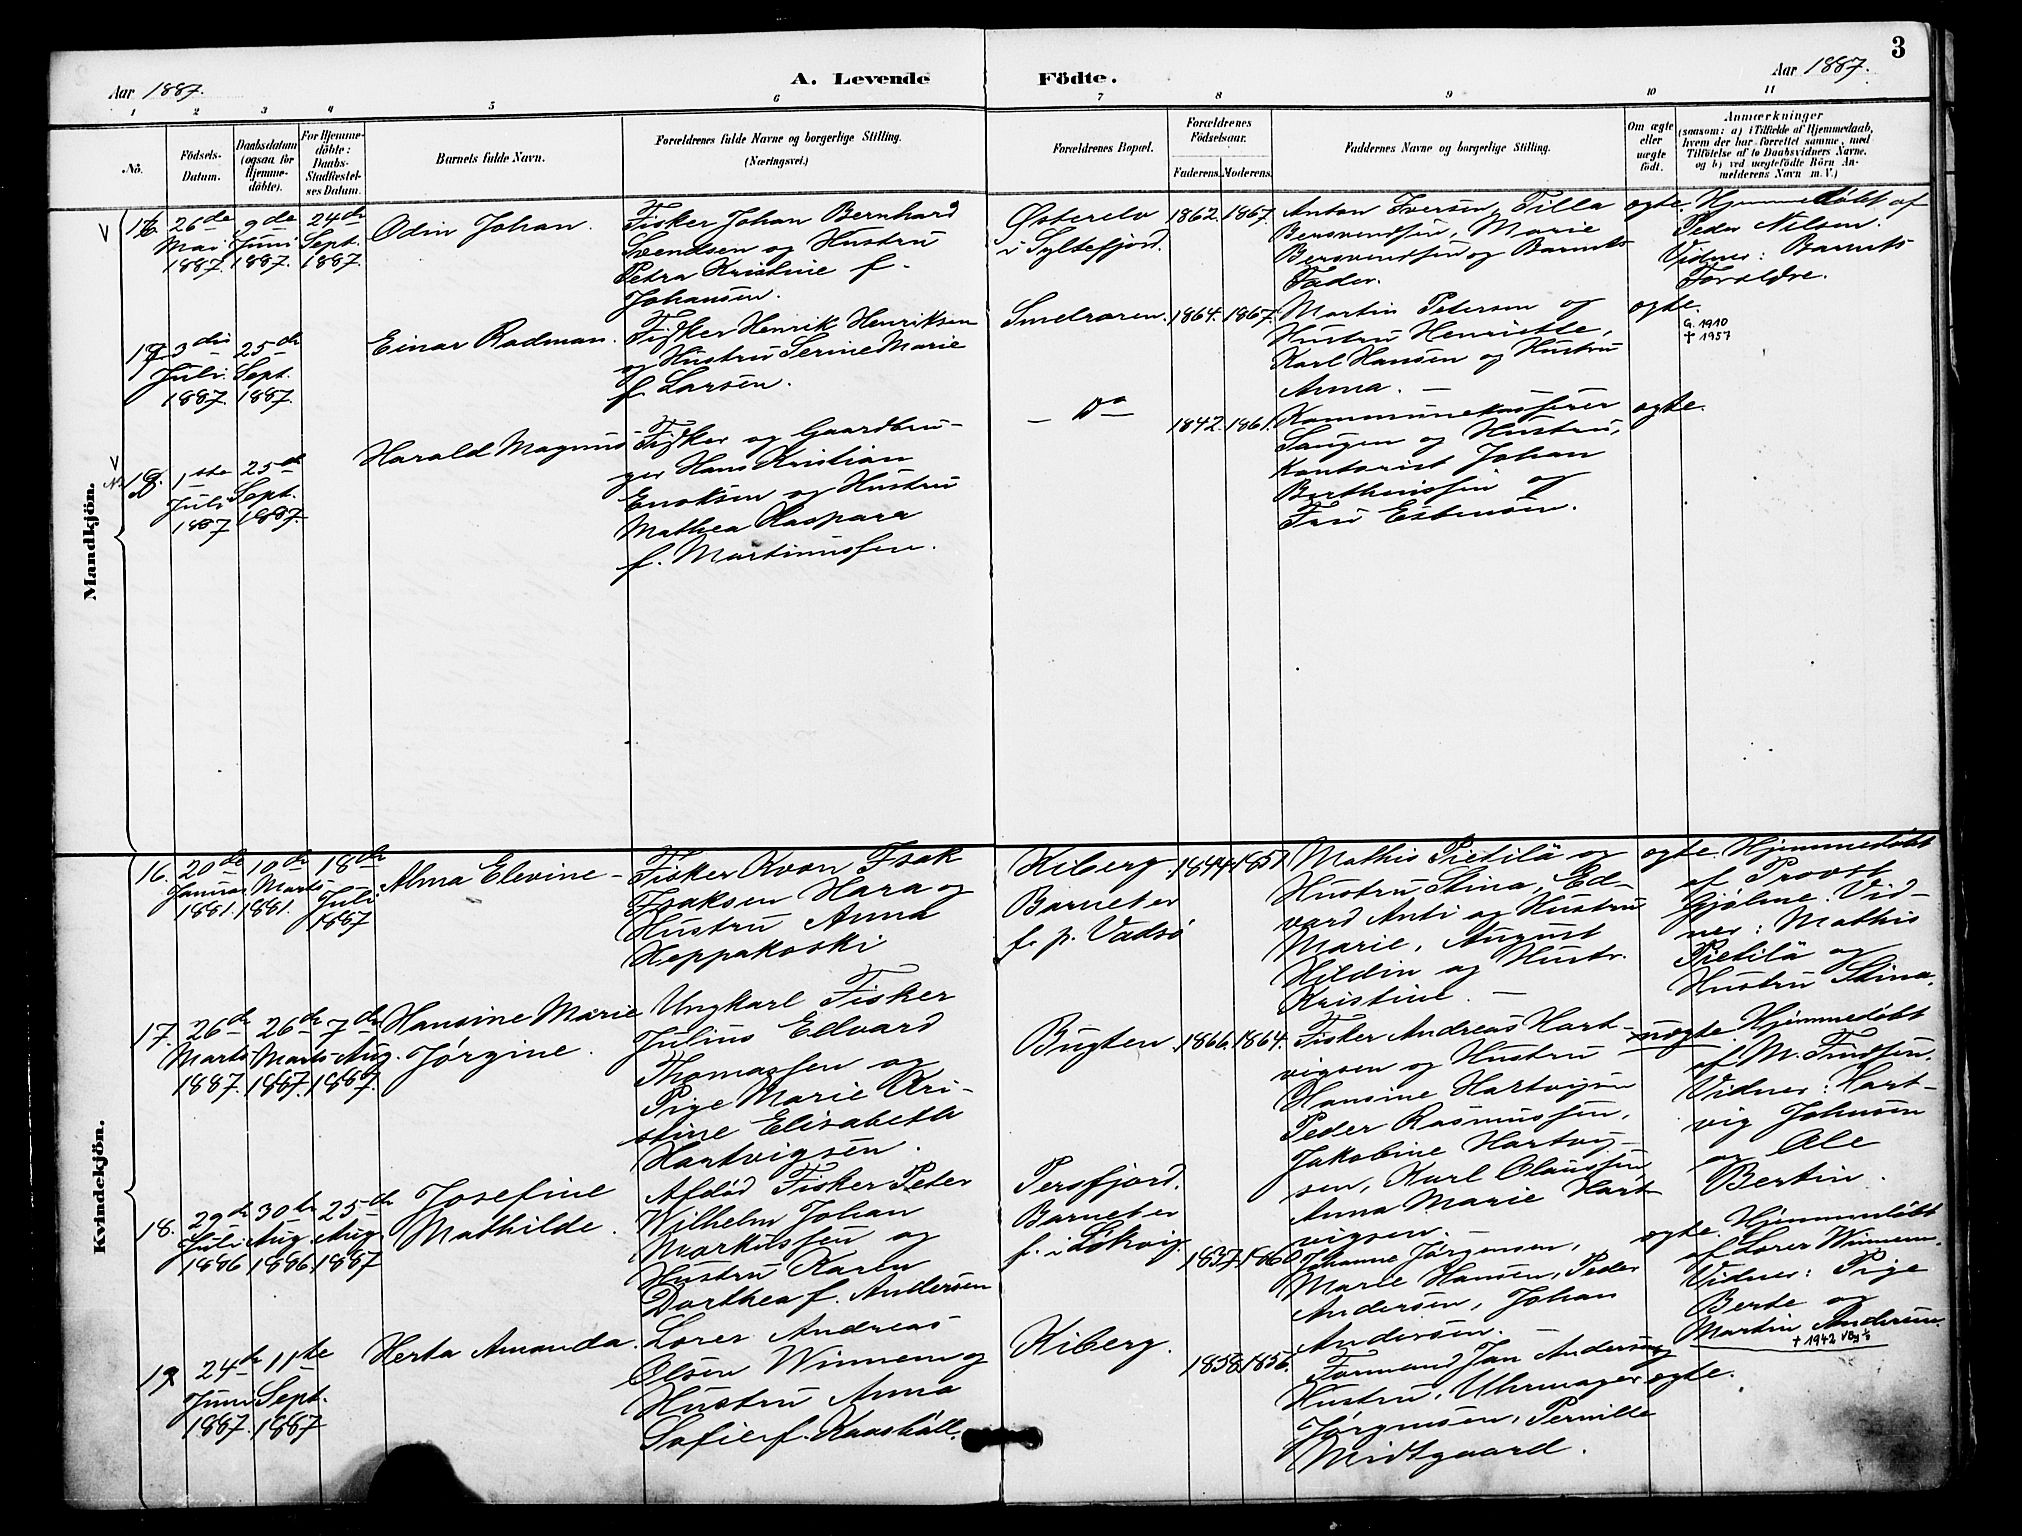 3
Aar 1887.
A. Levende Födte.
Aar 1887.
1 2 3 4 5 6 7 8 9 10 11
No.
Födsels-
Datum.
Daabsdatum
(ogsaa for
Hjemme-
döbte).
For Hjemme-
döbte:
Daabs-
Stadfæstel-
ses Datum.
Barnets fulde Navn.
Forældrenes fulde Navne og borgerlige Stilling.
(Næringsvei.)
Forældrenes Bopæl.
Forældrenes
Födselsaar.
Faderens. Moderens.
Faddernes Navne og borgerlige Stilling.
Om ægte
eller
uægte
født.
Anmærkninger
(saasom: a) i Tilfælde af Hjemmedaab,
hvem der har forrettet samme, med
Tilföielse af to Daabsvidners Navne.
og b) ved uægtefödte Börn An-
melderens Navn m. V.)
Mandkjön.
16.
26de
Mai
1887.
9de
Juni
1887.
24de
Sept.
1887.
Odin Johan.
Fisker Johan Bernhard
Svendsen og Hustru
Petra Kristine f.
Johansen.
Østerelv
i Syltefjord.
1862. 1867.
Anton Iversen, Tilla
Bersvendsen, Marie
Bersvendsen og Barnets
Fader.
ægte.
Hjemmedøbt af
Peder Nilsen.
Vidner: Barnets
Forældre.
17.
3die
Juli.
1887.
25de
Sept.
1887.
Einar Radman.
Fisker Henrik Henriksen
og Hustru Serine Marie
f. Larsen.
Smelroren.
1864. 1867.
Martin Petersen og
Hustru Henriette,
Karl Hansen og Hustru
Anna. —
ægte.
G. 1910
† 1957
18.
1ste
Juli
1887
25de
Sept.
1887.
Harald Magnus
Fisker og Gaardbru-
ger Hans Kristian
Enoksen og Hustru
Mathea Kaspara
f. Martinussen.
— Do —
1842. 1861.
Kommunekasserer
Saugen og Hustru,
Kontorist Johan
Berthinssen og
Fru Esbensen.
ægte.
Kvindekjön.
16.
20de
Januar
1881.
10de
Marts
1881.
18de
Juli
1887
Alma Elevine –
Fisker Kvæn Isak
Isaksen Hara og
Hustru Anna
Keppakoski
Kiberg.
Barnet er
f. p. Vadsø
1844. 1851.
Mathis Pietilä og
Hustru Stina, Ed-
vard Anti og Hustru
Marie, August
Hildin og Hustr.
Kristine. —
ægte.
Hjemmedøbt
af Provst
Gjølme. Vid-
ner: Mathis
Pietilä og
Hustru Stina.
17.
26de
Marts
1887.
26de
Marts
1887.
7de
Aug.
1887.
Hansine Marie
Jørgine.
Ungkarl Fisker
Julius Edvard
Thomassen og
Pige Marie Kri-
stine Elisabeth
Hartvigsen.
Bugten.
1866. 1864.
Fisker Andreas Hart-
vigsen og Hustru
Hansine Hartvigsen
Peder Rasmussen,
Jakobine Hartvig-
sen, Karl Olaussen
Anna Marie Hart-
vigsen.
uægte.
Hjemmedøbt
af M. Trudsen.
Vidner: Hart-
vig Johnsen
og Ole
Bertin.
18.
29de
Juli
1886
30te
Aug.
1886
25de
Aug.
1887
Josefine
Mathilde.
Afdød Fisker Peter
Wilhelm Johan
Markussen og
Hustru Karen
Dorthea f. Andersen
Persfjord.
Barnet er
f. i Løkvig.
1837. 1860
Johanne Jørgensen,
Marie Hansen, Peder
Andersen, Johan
Andersen.
ægte.
Hjemmedøbt
af Lærer Winnem.
Vidner: Pige
Berte og
Martin Andersen.
† 1942
19.
24de
Juni
1887.
11te
Sept.
1887
Herta Amanda.
Lærer Andreas
Olsen Winnem og
Hustru Anna
Sofie f. Kaashöll.
Kiberg.
1858. 1856.
Formand Jan Andersen og
Hustru, Uhrmager
Jørgensen, Pernille
Midtgaard.
ægte.